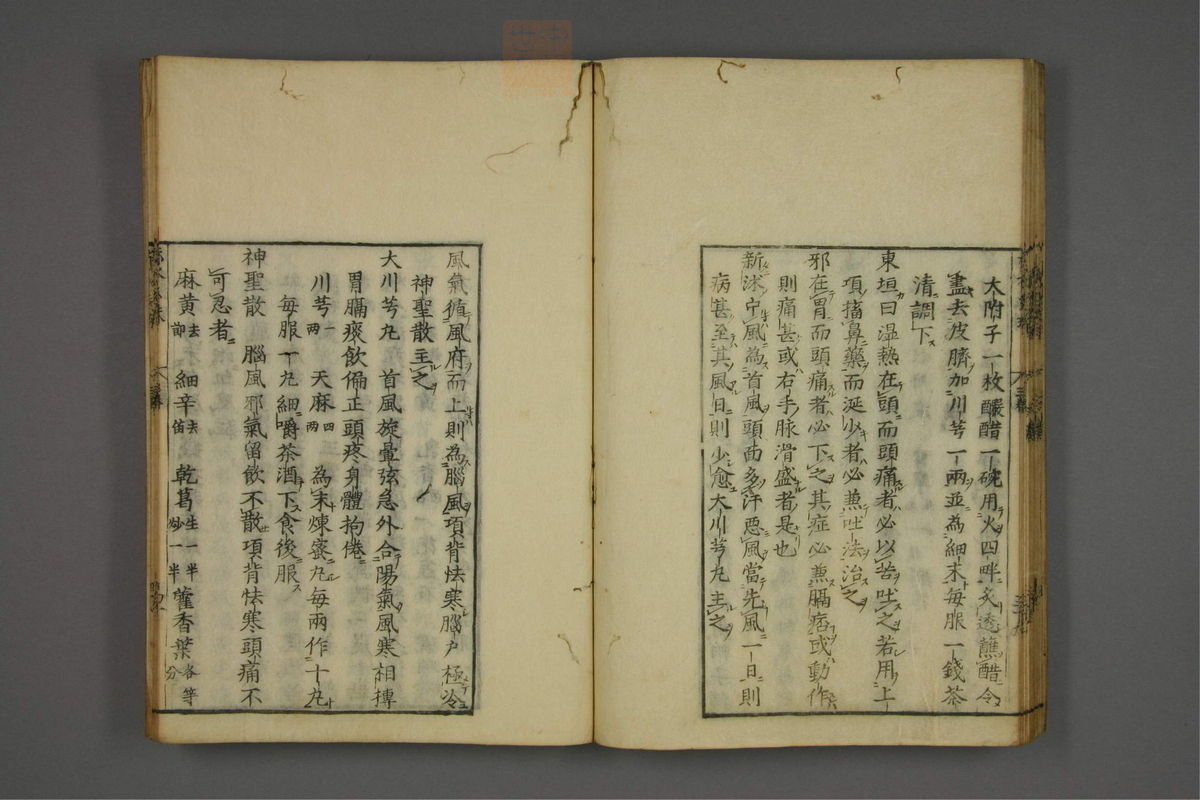 大附子一枚釅醋一碗用火四畔炙透蘸醋令
盡去皮臍加川芎一兩並為細末每服一錢茶
清調下
東垣曰湿熱在頭而頭痛者必以苦吐之若用上
項搐鼻藥而涎少者必兼吐法治之
邪在胃而頭痛者必下之其症必兼膈痞或動作
則痛甚或右手脉滑盛者是也
新沐中風為首風頭面多汗悪風當先風一日則
病甚至其風日則少愈大川芎丸主之
風氣循風府而上則為腦風項背怯寒腦户極冷
神聖散主之
大川芎丸　首風旋暈弦急外合陽氣風寒相摶
胃膈痰飲偏正頭疼身體拘倦
川芎一兩　天麻四兩　為末煉蜜丸每兩作十丸
每服一丸細嚼茶酒下食後服
神聖散　腦風邪氣留飲不散項背怯寒頭痛不
可忍者
麻黄去節　細辛去苗　乾葛生一半炒一半　藿香葉各等分